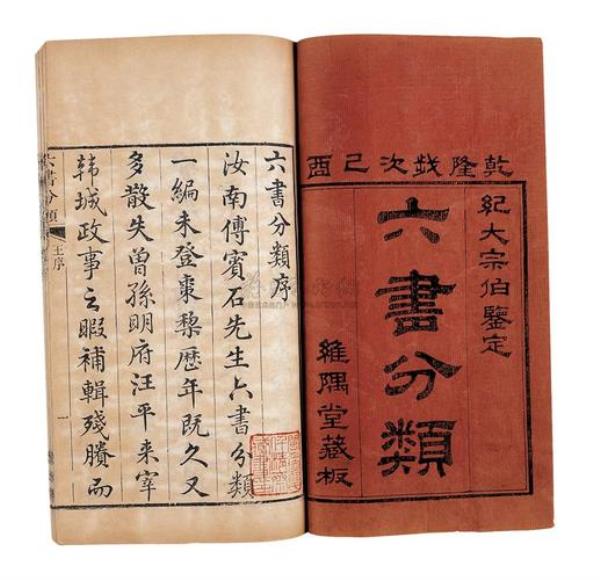 乾隆歲次己酉
紀大宗伯鑒定
六書分類
維隅堂藏板
六書分類序
汝南傅賓石先生六書分類
一編未登棗黎歷年既久又
多散失曾孫明府汪平來宰
韓城政事之暇補輯殘賸而
六書分類 王序 一